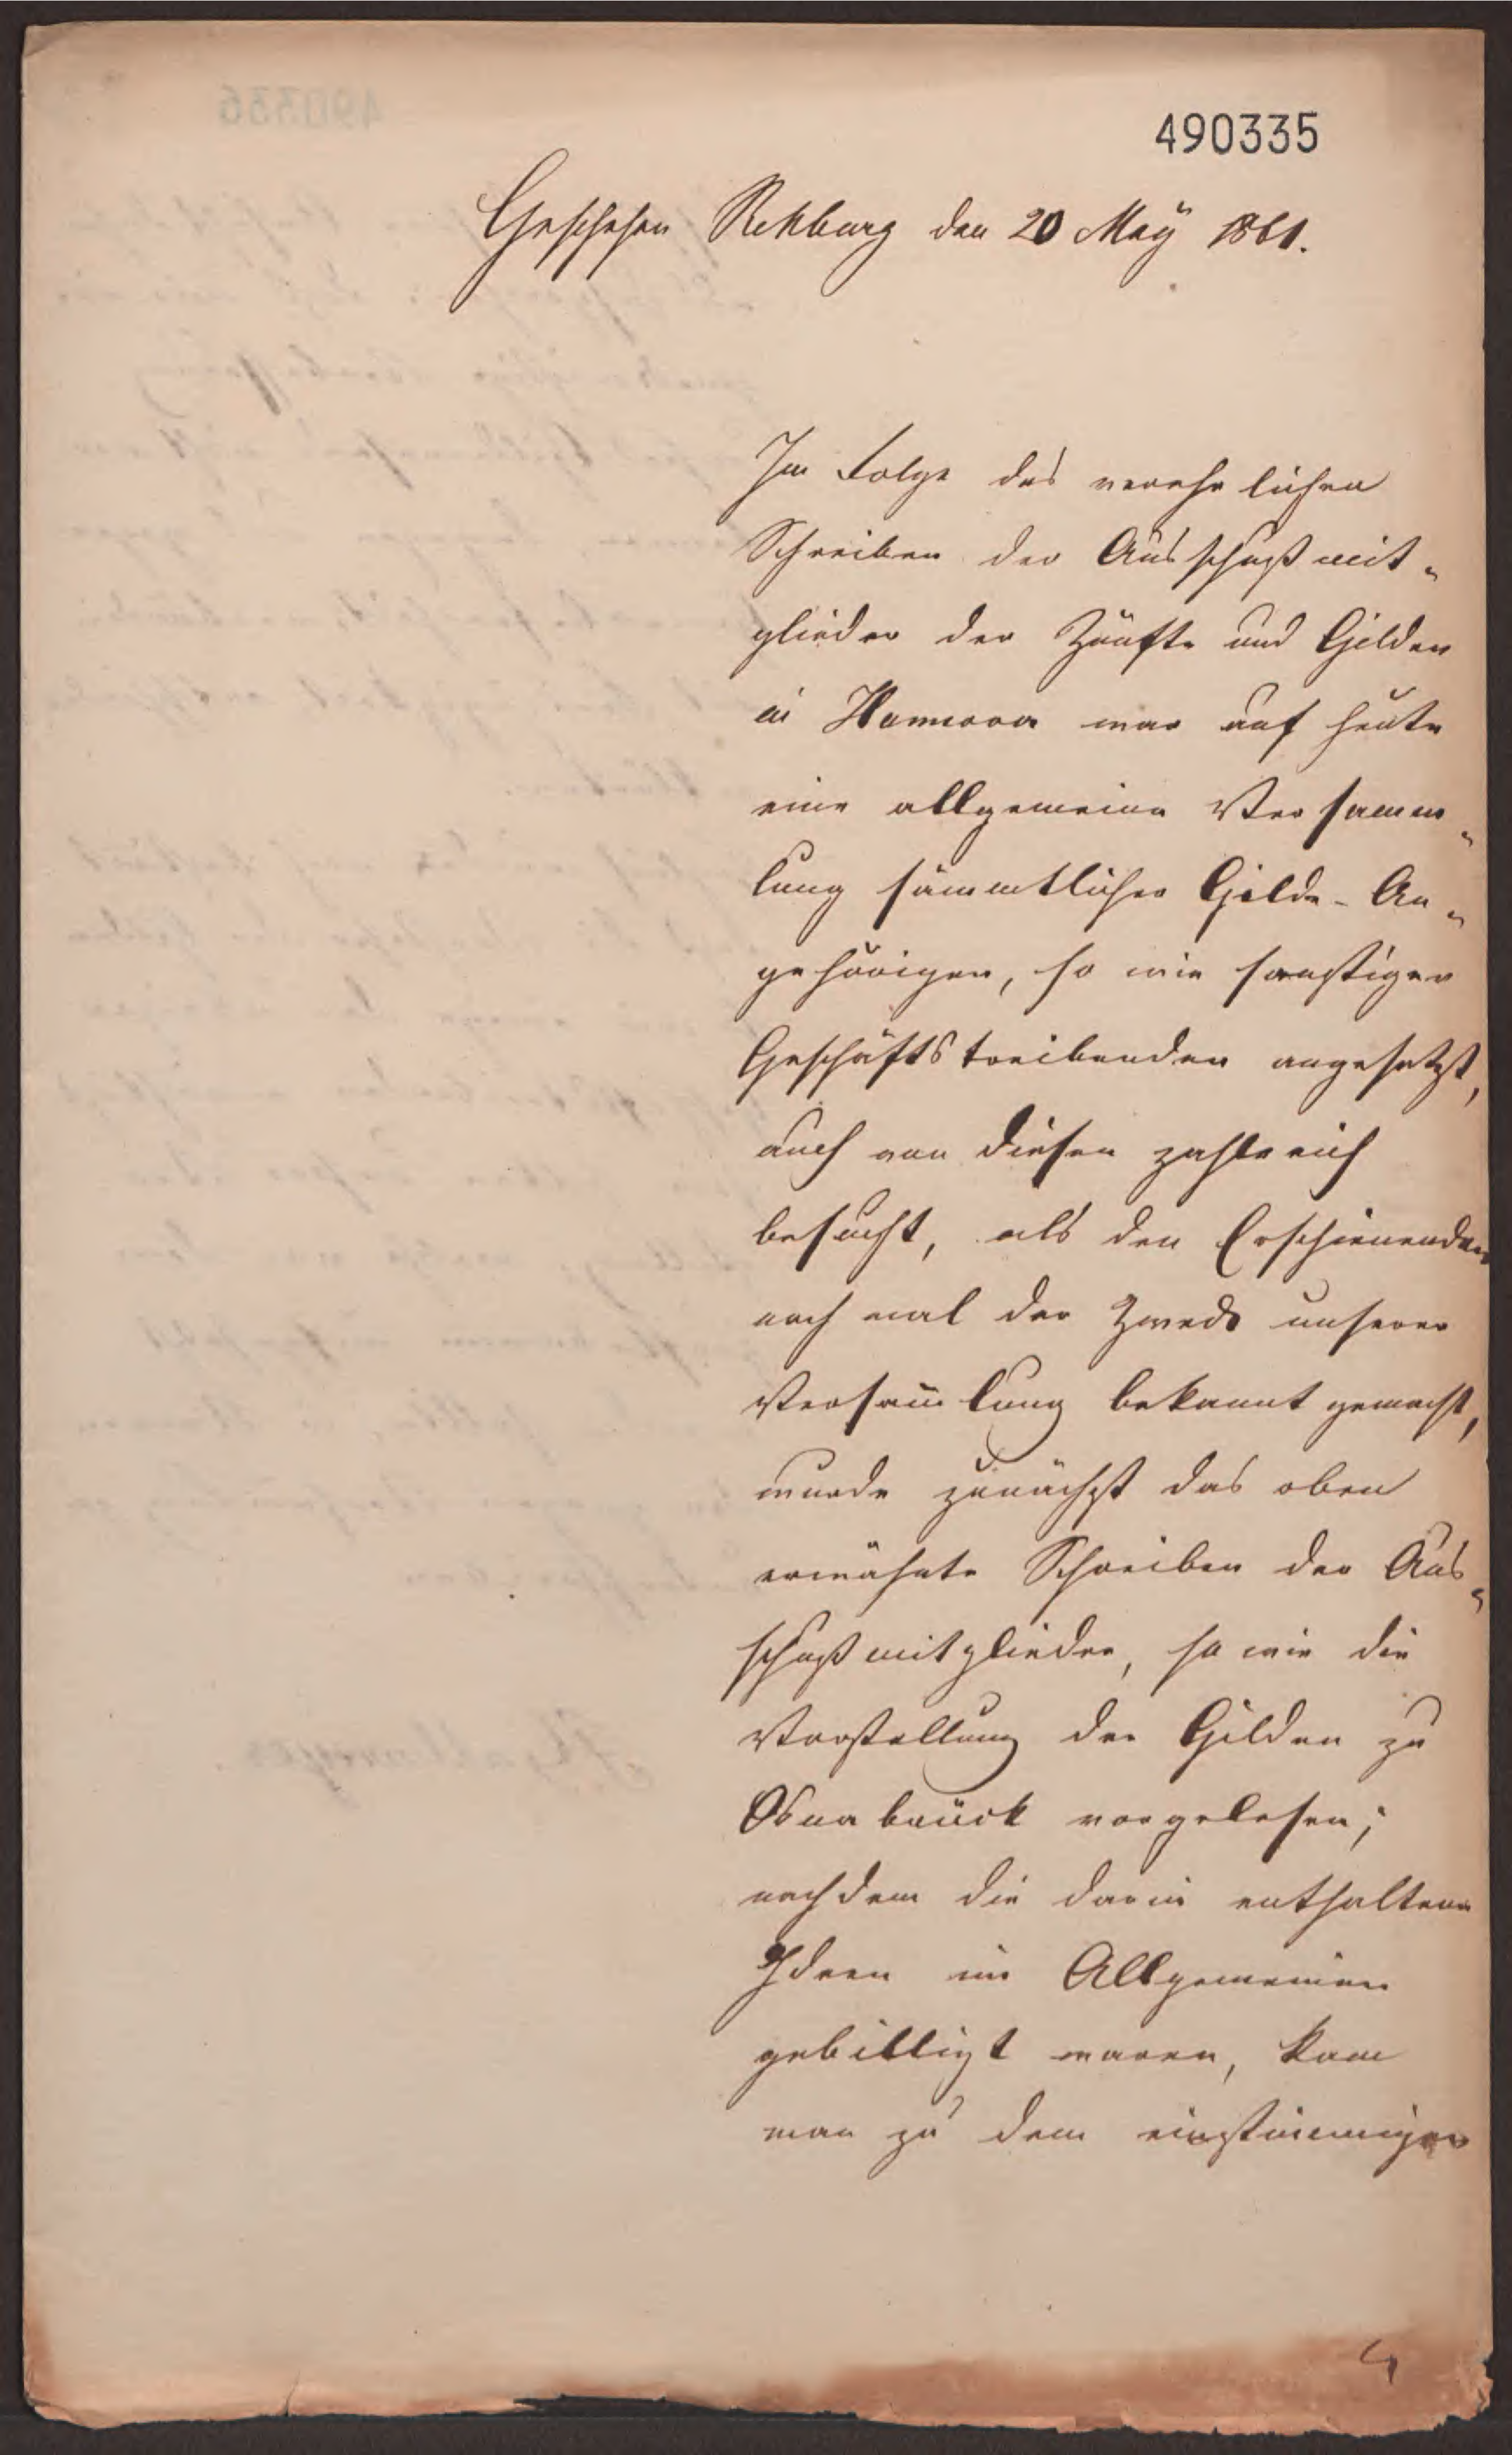 490335
Geschehen Rehburg den 20 May 1861.
Im Folge des verehrlichen
Schreiben der Ausschußmit-
glieder der Zünfte und Gilden
in Hannover war auf heute
eine allgemeine Versamm-
lung sämmtlicher Gilde-An-
gehörigen, so wie sonstiger
Geschäftstreibenden angesetzt,
auch von diesen zahlreich
besucht, als den Erschienenden
noch mal der Zweck unserer
Versam̄lung bekannt gemacht,
wurde zunächst das oben
erwähnte Schreiben der Aus-
schußmitglieder, so wie die
Vorstellung der Gilden zu
Osnabrück vorgelesen;
nachdem die darin enthaltene
Ideen im Allgemeinen
gebilligt waren, kam
man zu dem einstimmigen